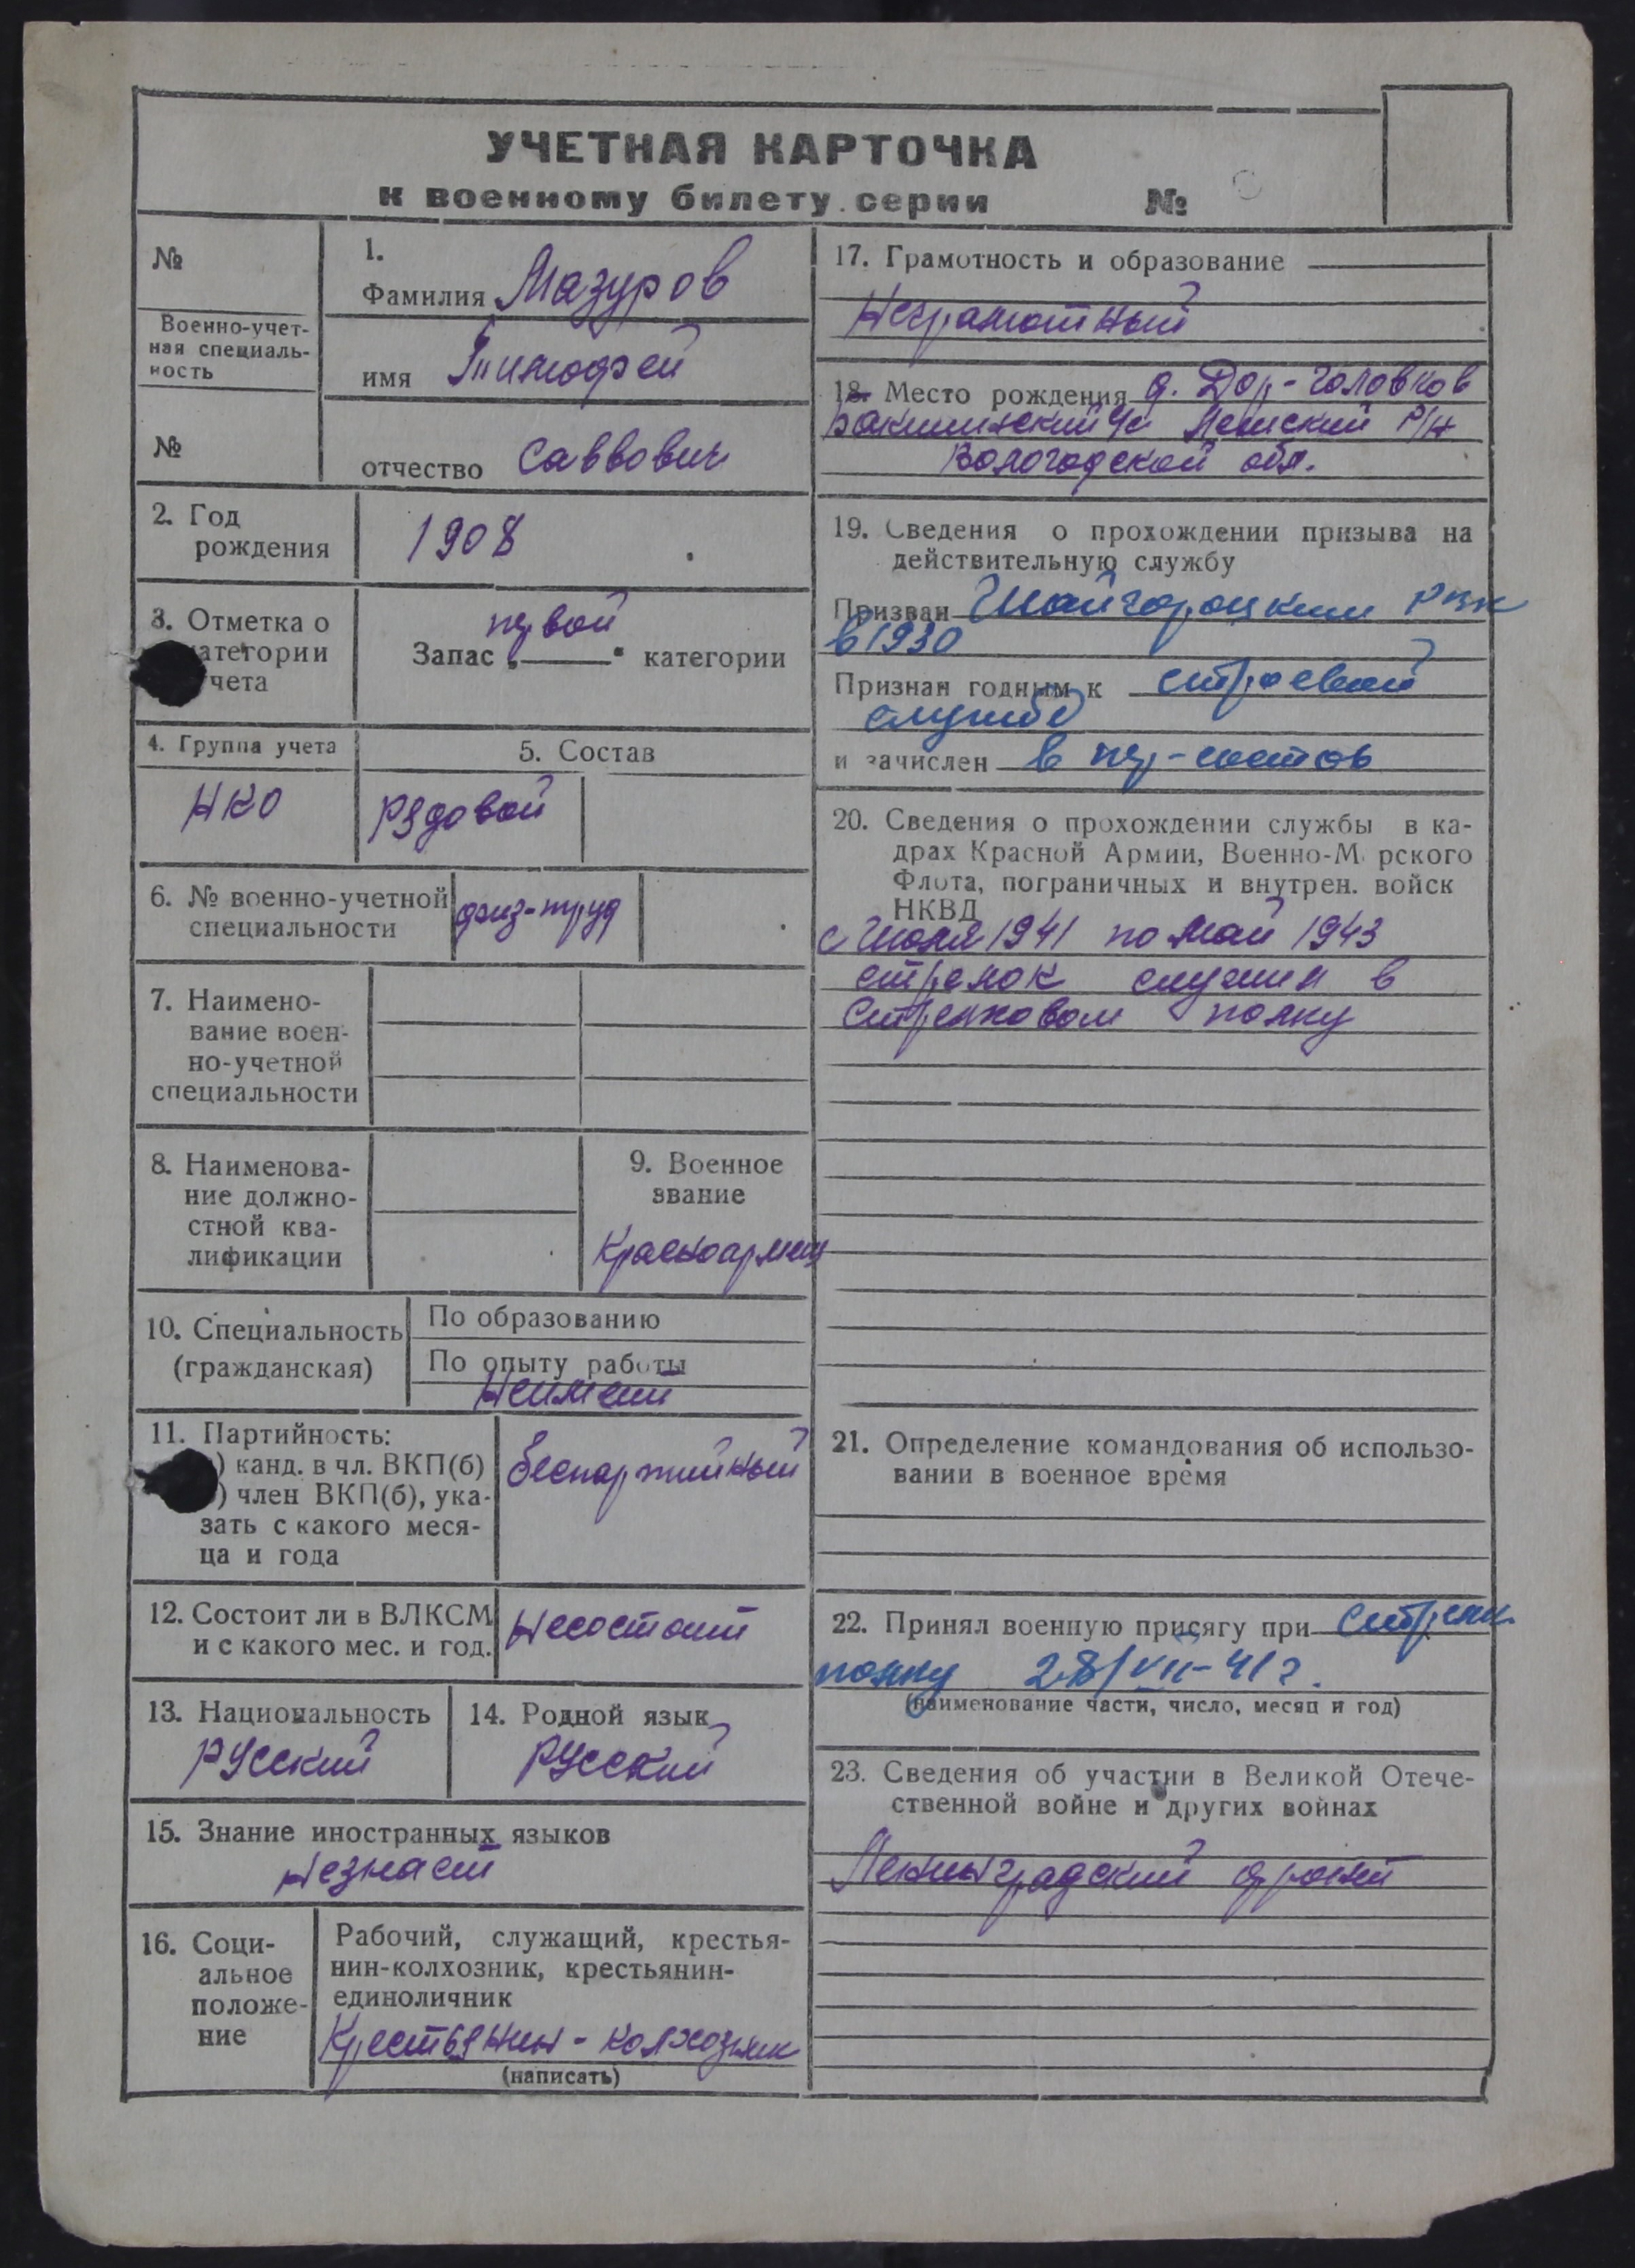 УЧЕТНАЯ КАРТОЧКА
к военному билету серии №
№
Военно-учет-
ная специаль-
ность
№
1.
Фамилия Мазуров
имя Тимофей
отчество Саввович
2. Год
рождения
1908
3. Отметка о
атегории
чета
первой
Запас „ “ категории
4. Группа учета
НКО
5. Состав
Рядовой
6. № военно-учетной
специальности
физ-труд
7. Наимено-
вание воен-
но-учетной
специальности
8. Наименова-
ние должно-
стной ква-
лификации
9. Военное
звание
Красноармеец
10. Специальность
(гражданская)
По образованию
По опыту работы
Неимеет
11. Партийность:
) канд. в чл. ВКП(б)
) член ВКП(б), ука-
зать с какого меся-
ца и года
Беспартийный
12. Состоит ли в ВЛКСМ
и с какого мес. и год.
Несостоит
13. Национальность
Русский
14. Родной язык
Русский
15. Знание иностранных языков
Незнает
16. Соци-
альное
положе-
ние
Рабочий, служащий, крестья-
нин-колхозник, крестьянин-
единоличник
Крестьянин-колхозник
(написать)
17. Грамотность и образование
Неграмотный
18. Место рождения д. Дор-Головков
с/с Лежский Р/н
Вологодской обл.
19. Сведения о прохождении призыва на
действительную службу
Призван РВК
в 1930
Признан годным к строевой
службе
и зачислен в
20. Сведения о прохождении службы в ка-
драх Красной Армии, Военно-М рского
Флота, пограничных и внутрен. войск
НКВД
с Июля 1941 по Май 1943
стрелок служил в
Стрелковом полку
21. Определение командования об использо-
вании в военное время
22. Принял военную присягу при Стрелк.
полку 28/VII-41 г.
(наименование части, число, месяц и год)
23. Сведения об участии в Великой Отече-
ственной войне и других войнах
Ленинградский фронт